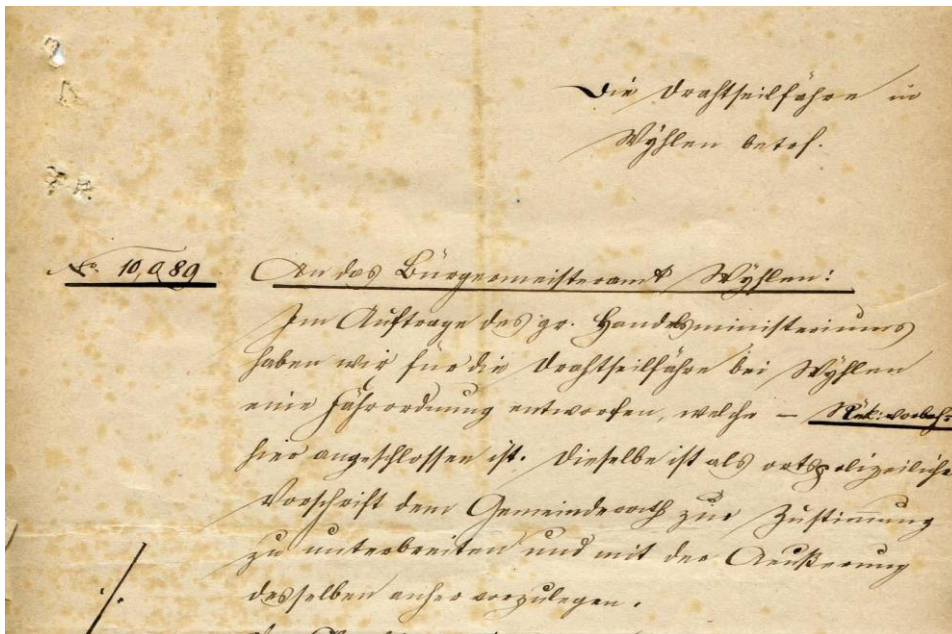 Die Drahtseilfähre in
Wyhlen betrf.
No. 10,089
An das Bürgermeisteramt Wyhlen:
Im Auftrage des gr. Handelsministeriums
haben wir für die Drahtseilfähre bei Wyhlen
eine Fährordnung entworfen, welche – Rük:vorbeh:
hier angeschlossen ist. Dieselbe ist als ortspolizeiliche
Vorschrift dem Gemeinderath zur Zustimmung
zu unterbreiten und mit der Aeußerung
desselben anher vorzulegen.